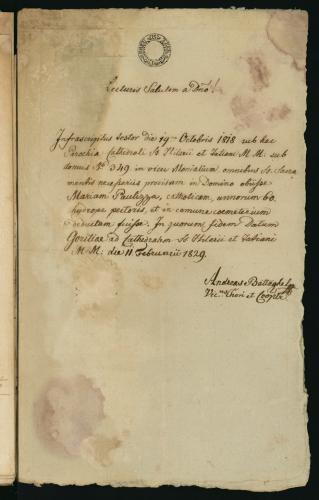 Lecturis Salutem a Dño
Infrascriptus testor die 19 Octobris 1818 sub hac
Parochia Cathedrali SS Hilarii et Tatiani M. M. sub
domus No 349 in vico Monialium omnibus SS. Sacra
mentis necessariis provisam in Domino obiisse
Mariam Paulizza, catholicam, annorum 60
hydrope pectoris, et in comune coemeterium
deductam fuisse. In quorum fidem Datum
Goritiae ad Cathedralem SS Hilarii et Tatiani
M. M: die 11 Februarii 1829.
Andreas Battaghe
Vic. Chori et Cooptr